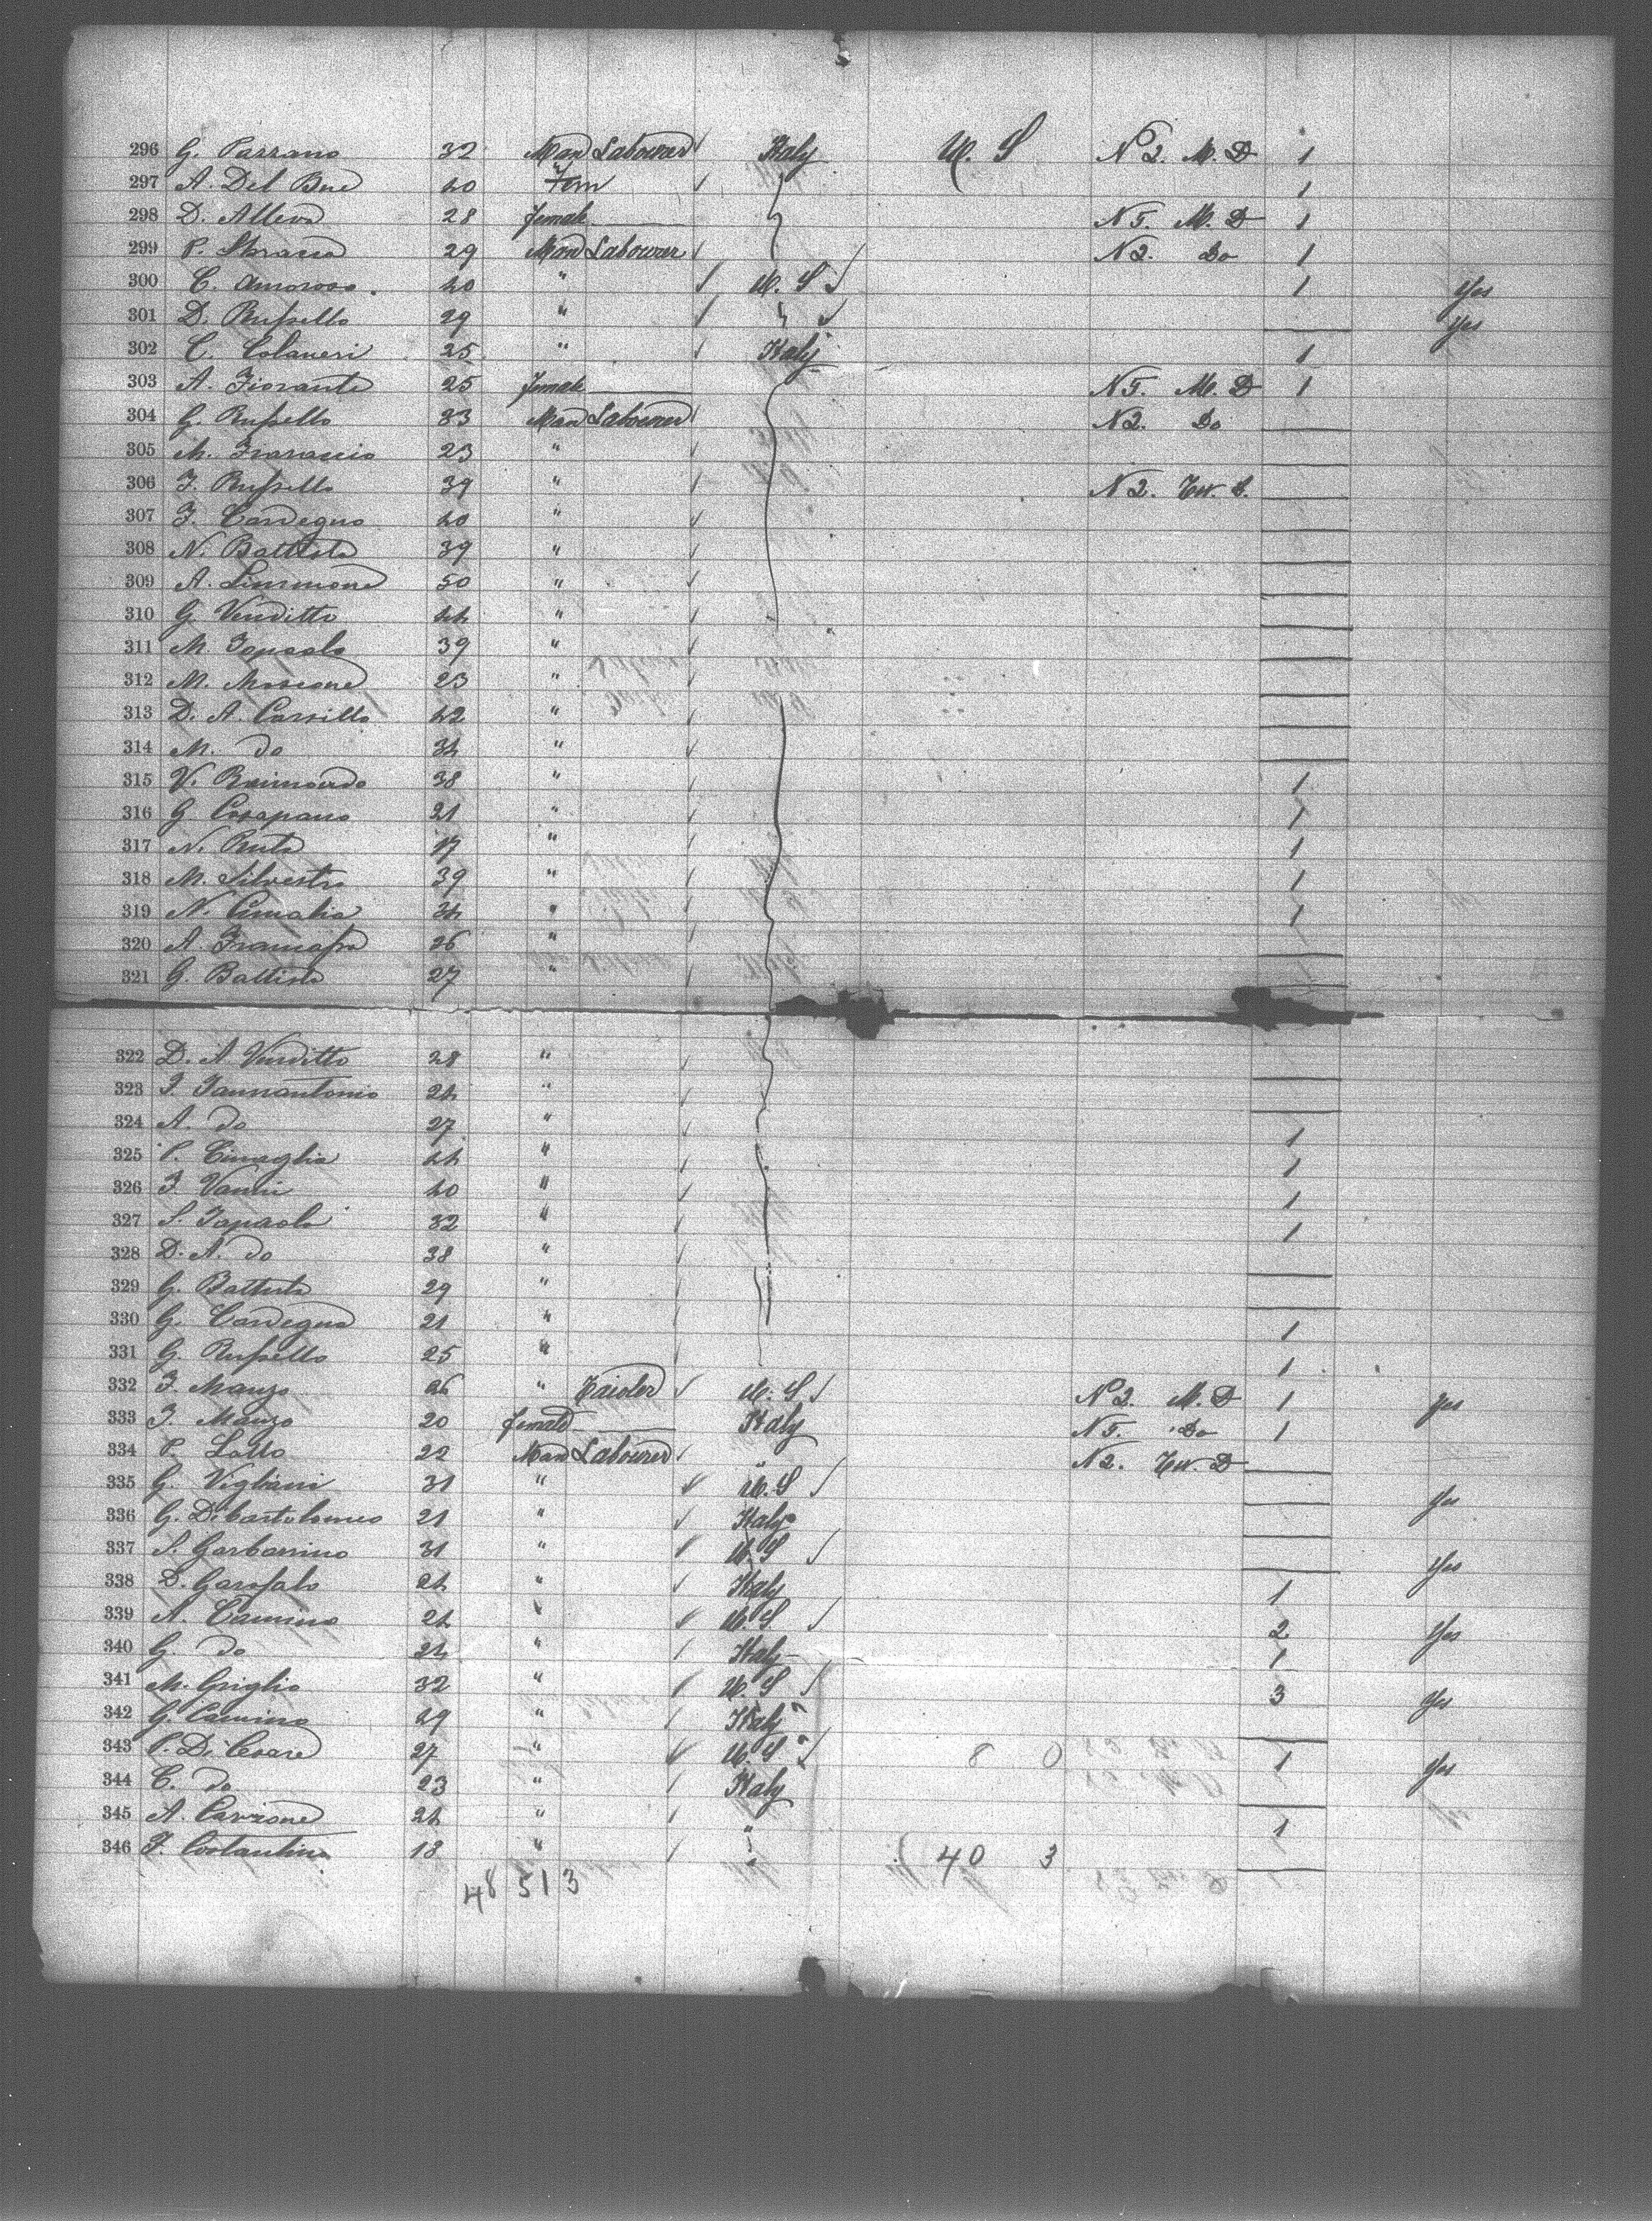 296 G. Parrano 32 Man Labourer Italy U. S N 2. M. D 1
297 A. Del Bue 40 " 1
298 D. Alleva 28 female N 5. M. D 1
299 P. 29 Man Labourer N 2. Do 1
300 C. Amoroso. 40 " U. S 1 Yes
301 D. Russello 29 " " Yes
302 C. Colaneri 25 " Italy 1
303 A. Fiorante 25 female N 5. M. D 1
304 G. Russello 33 Man Labourer N 2. Do
305 M. 23 "
306 F. Russello 39 " N 2.
307 F. Cardegno 40 "
308 N. Battista 39 "
309 A. 50 "
310 G. Venditto 44 "
311 M. 39 "
312 M. Moscone 23 "
313 D. A. Carrillo 42 "
314 M. do 34 "
315 V. Raimondo 38 " 1
316 G 21 " 1
317 N. Ruta 17 " 1
318 M. Silvestro 39 " 1
319 N. 34 " 1
320 A. 26 "
321 G. Battista 27 "
322 D. A. Venditto 28 "
323 F. Iannantonio 24 "
324 A. do 27 " 1
325 P. Cimaglia 44 " 1
326 F. Vanni 40 " 1
327 S. Iapaolo 32 " 1
328 D. A. do 38 "
329 G. Battista 29 "
330 G. Cardegna 21 " 1
331 G. Russello 25 " 1
332 F. Manzo 26 " Taioler U. S N 2. M. D 1 Yes
333 F. Manzo 20 female Italy N 5. Do 1
334 P. Lallo 22 Man Labourer " N 2.
335 G. Vigliani 31 " U. S Yes
336 G. Dibartolomeo 21 " Italy
337 S. Garbarrino 31 " U. S Yes
338 D. Garofalo 24 " Italy 1
339 A. Camino 24 " U. S 2 Yes
340 G. do 24 " Italy 1
341 M. Griglio 32 " U. S 3 Yes
342 G. Camino 29 " Italy
343 P. Di Cesare 27 " U. S 8 0 1 Yes
344 C. do 23 " Italy
345 A. Carrone 24 " " 1
346 F. Costantino 18 " " 40 3
48 513